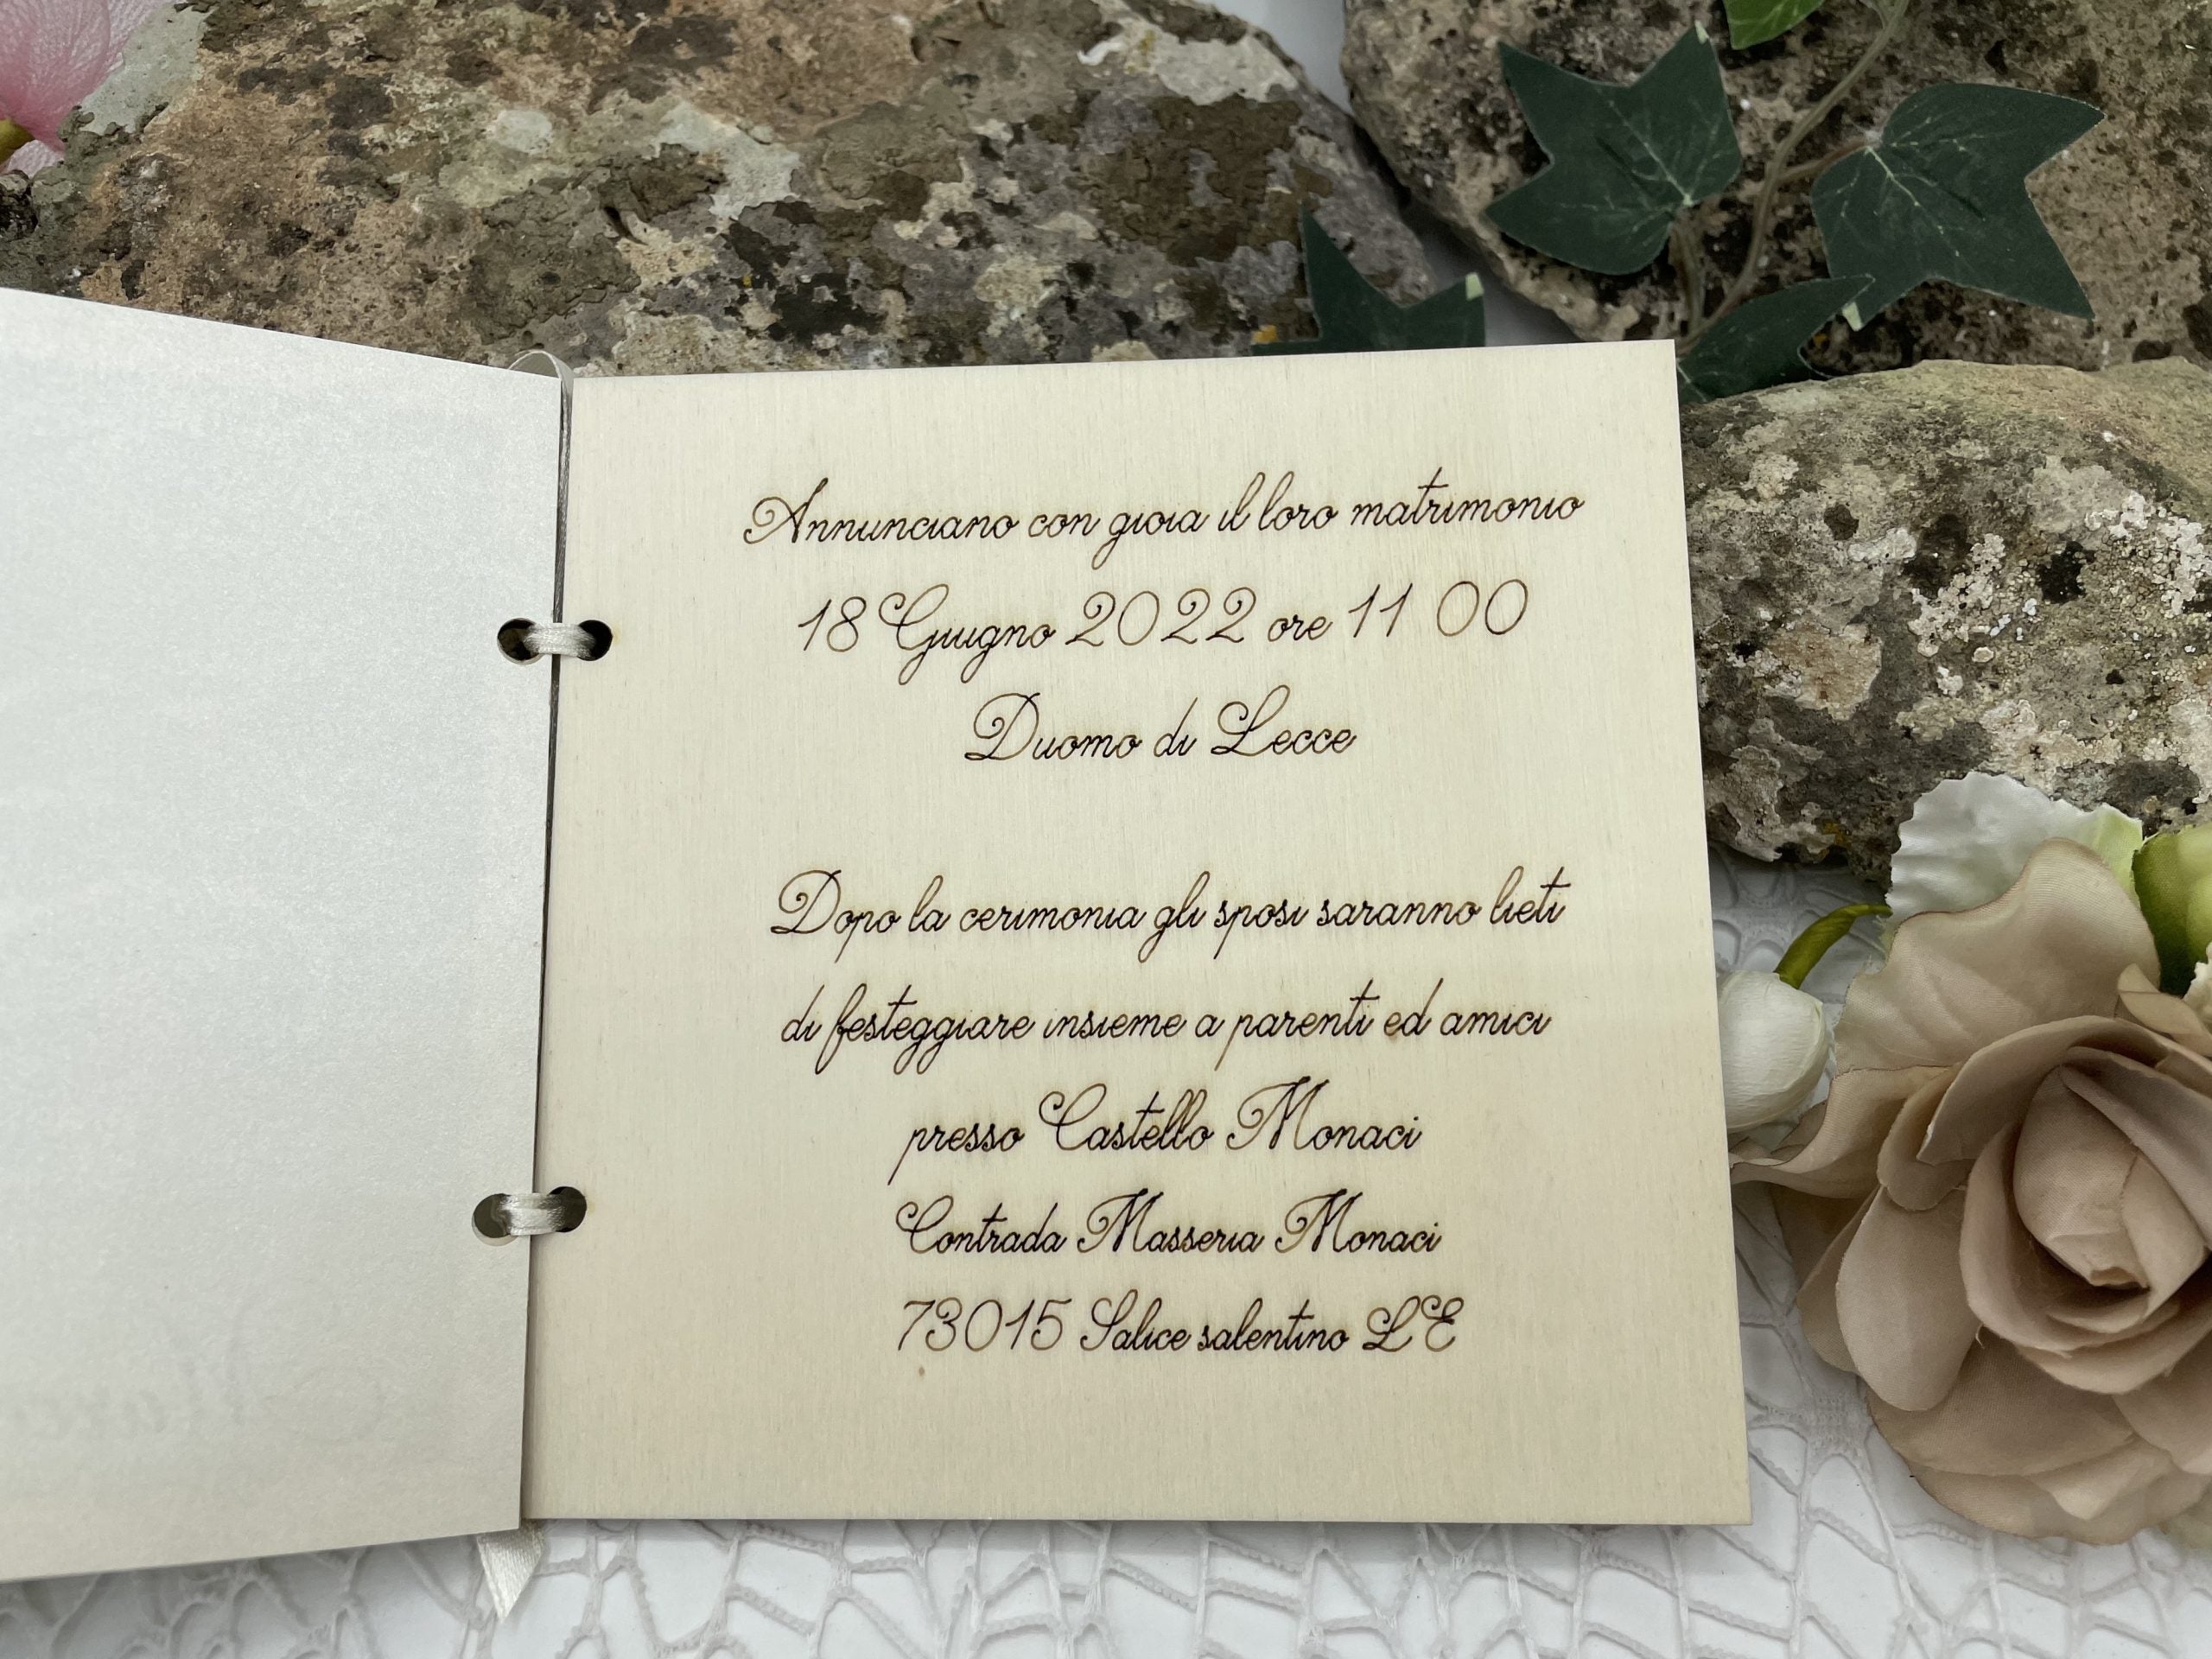 Annunciano con gioia il loro matrimonio
18 Giugno 2022 ore 11 00
Duomo di Lecce
Dopo la cerimonia gli sposi saranno lieti
di festeggiare insieme a parenti ed amici
presso Castello Monaci
Contrada Masseria Monaci
73015 Salice salentino LE